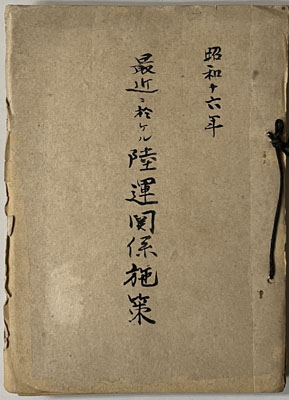 昭和十六年
最近ニ於ケル陸運関係施策